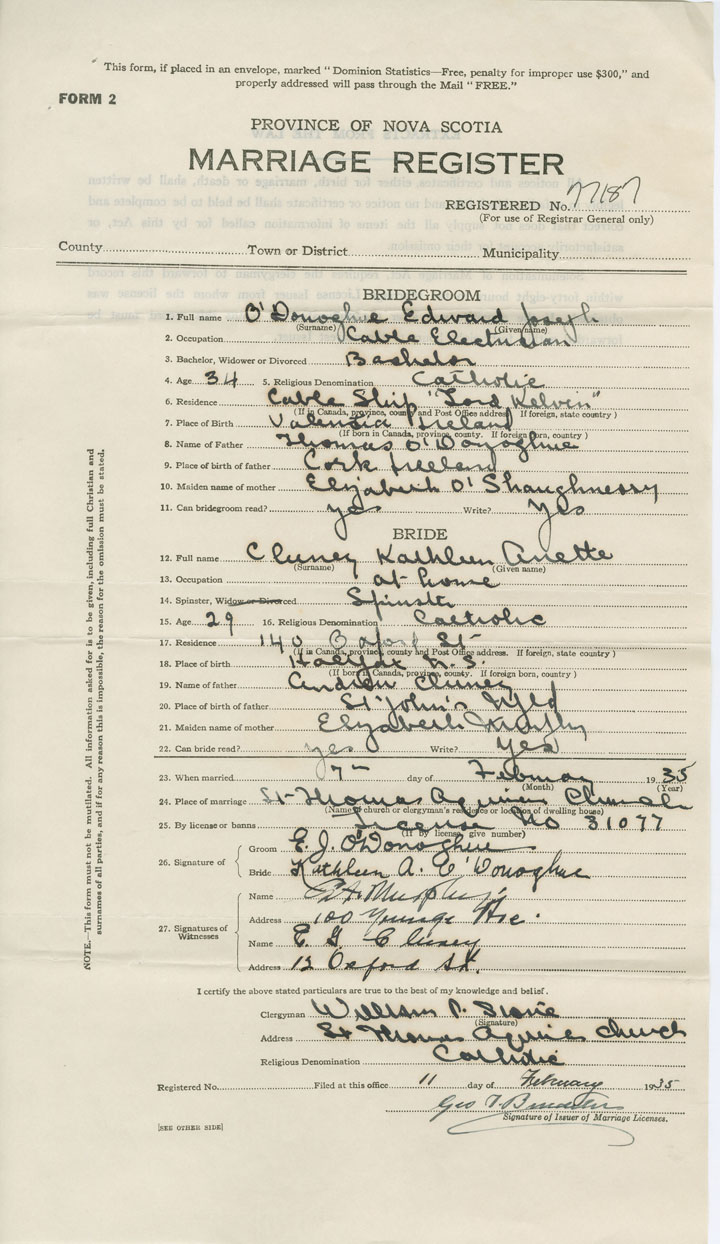 This form, if placed in an envelope, marked "Dominion Statistics—Free, penalty for improper use $300," and
properly addressed will pass through the Mail "FREE."
FORM 2
PROVINCE OF NOVA SCOTIA
MARRIAGE REGISTER
REGISTERED No. 77187
(For use of Registrar General only)
County Town or District Municipality
BRIDEGROOM
1. Full name O'Donoghue Edward Joseph
(Surname) (Given name)
2. Occupation Cable Electrician
3. Bachelor, Widower or Divorced Bachelor
4. Age 34 5. Religious Denomination Catholic
6. Residence Cable Ship "Lord Kelvin"
(If in Canada, province, county and Post Office address. If foreign, state country)
7. Place of Birth Valentia Ireland
(If born in Canada, province, county. If foreign born, country)
8. Name of Father Thomas O'Donoghue
9. Place of birth of father Cork Ireland
10. Maiden name of mother Elizabeth O'Shaughnessy
11. Can bridegroom read? yes Write? Yes
BRIDE
12. Full name Cluney Kathleen Anette
(Surname) (Given name)
13. Occupation at home
14. Spinster, Widow or Divorced Spinster
15. Age 29 16. Religious Denomination Catholic
17. Residence 140 Oxford St
(If in Canada, province county and Post Office address. If foreign, state country)
18. Place of birth Halifax N.S.
(If born in Canada, province, county. If foreign born, country)
19. Name of father Andrew Cluney
20. Place of birth of father St John's Nfld
21. Maiden name of mother Elizabeth
22. Can bride read? yes Write? Yes
23. When married 7th day of February 1935
(Month) (Year)
24. Place of marriage St Thomas Aquinas Church
(Name of church or clergyman's residence or location of dwelling house)
25. By license or banns License No 31077
(If by license, give number)
26. Signature of
Groom E. J. O'Donoghue
Bride Kathleen A. O'Donoghue
27. Signatures of
Witnesses
Name Murphy
Address 100 Younge Ave.
Name E G Cluney
Address 12 Oxford St.
I certify the above stated particulars are true to the best of my knowledge and belief.
Clergyman William P.
(Signature)
Address St Thomas Aquinas Church
Religious Denomination Catholic
Registered No. Filed at this office 11 day of February 1935
Geo
Signature of Issuer of Marriage Licenses.
[SEE OTHER SIDE]
NOTE.—This form must not be mutilated. All information asked for is to be given, including full Christian and
surnames of all parties, and if for any reason this is impossible, the reason for the omission must be stated.